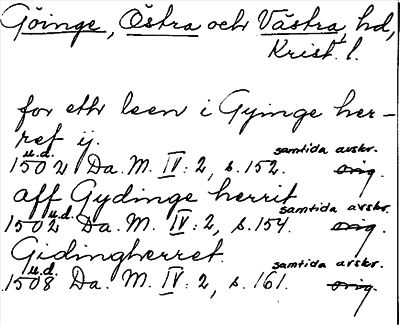 Göinge, Östra och Västra, hd,
Krist. l.
for ethr leen i Gyinge her-
ret ij.
u.d. samtida avskr.
1502 Da. M. IV: 2, s. 152. orig.
aff Gydinge herrit
u.d. samtida avskr.
1502 Da. M. IV: 2, s. 154. orig.
Gidingherret.
u.d. samtida avskr.
1508 Da. M. IV: 2, s. 161. orig.